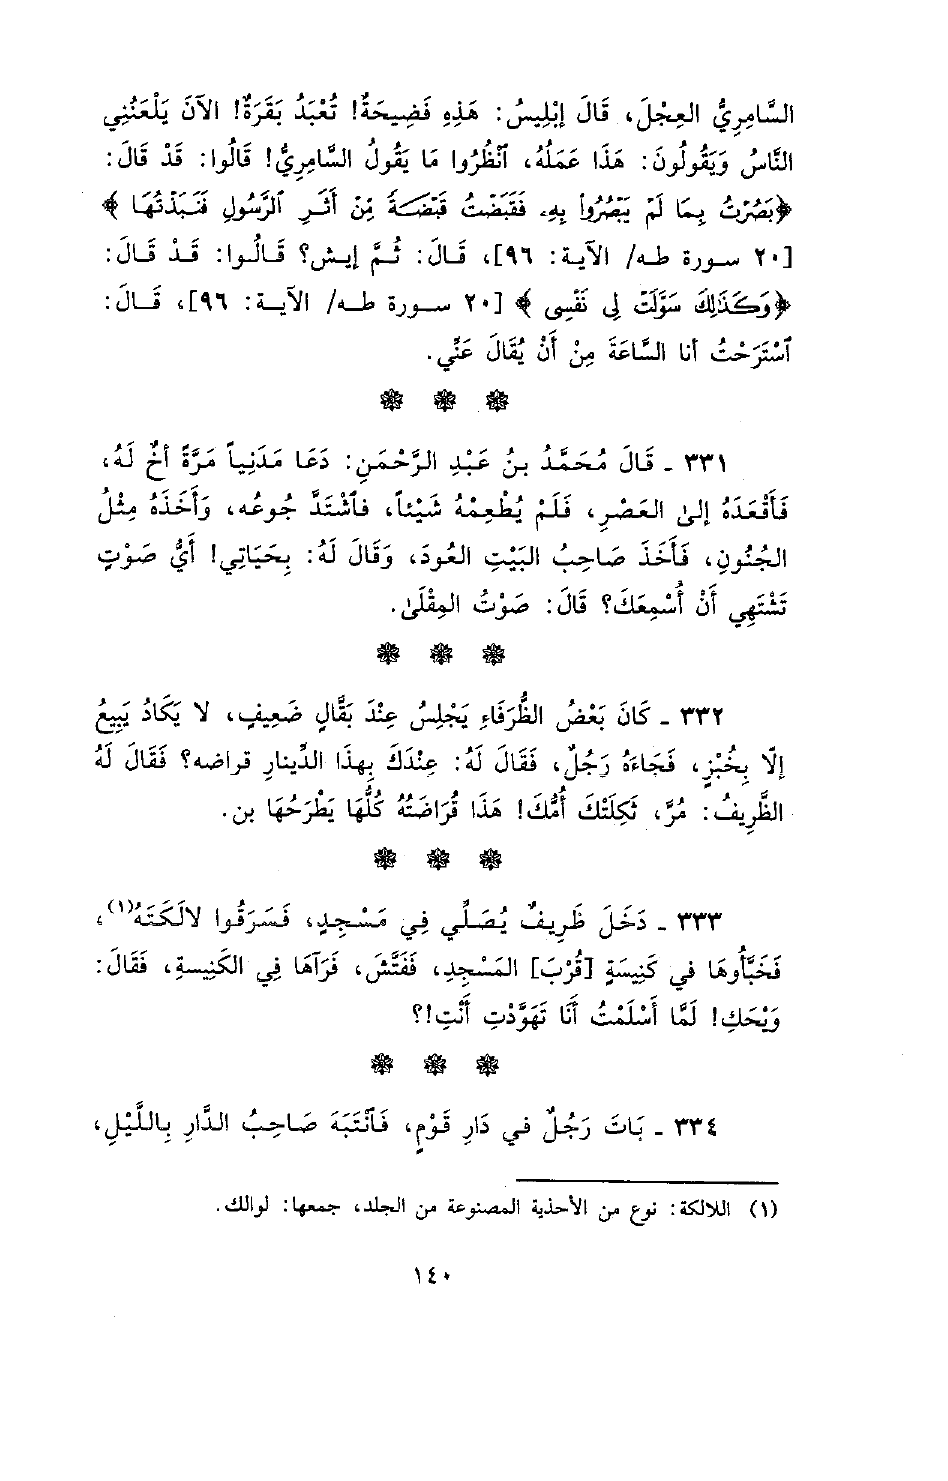 السَّامِرِيُّ العِجْلَ، قَالَ إبْلِيسُ: هَذِهِ فَضِيحَةٌ! تُعْبَدُ بَقَرَةٌ! الآنَ يَلْعَنُنِي
النَّاسُ وَيَقُولُونَ: هَذَا عَمَلُهُ، ٱنْظُرُوا مَا يَقُولُ السَّامِرِيُّ! قَالُوا: قَدْ قَالَ:
﴿بَصُرْتُ بِمَا لَمْ يَبْصُرُواْ بِهِۦ فَقَبَضْتُ قَبْضَةً مِّنْ أَثَرِ ٱلرَّسُولِ فَنَبَذْتُهَا﴾
[٢٠ سورة طه/ الآية: ٩٦]، قَالَ: ثُمَّ إيش؟ قَالُوا: قَدْ قَالَ:
﴿وَكَذَٰلِكَ سَوَّلَتْ لِى نَفْسِى﴾ [٢٠ سورة طه/ الآية: ٩٦]، قَالَ:
ٱسْتَرَحْتُ أنا السَّاعَةَ مِنْ أَنْ يُقَالَ عَنِّي.
٣٣١ ـ قَالَ مُحَمَّدُ بنُ عَبْدِ الرَّحْمَنِ: دَعَا مَدَنِياً مَرَّةً أخٌ لَهُ،
فَأَقْعَدَهُ إلىٰ العَصْرِ، فَلَمْ يُطْعِمْهُ شَيْئاً، فٱشْتَدَّ جُوعُه، وَأَخَذَهُ مِثْلُ
الجُنُونِ، فَأَخَذَ صَاحِبُ البَيْتِ العُودَ، وَقَالَ لَهُ: بِحَيَاتِي! أَيُّ صَوْتٍ
تَشْتَهِي أَنْ أُسْمِعَكَ؟ قَالَ: صَوْتُ المِقْلَىٰ.
٣٣٢ ـ كَانَ بَعْضُ الظُّرَفَاءِ يَجْلِسُ عِنْدَ بَقَّالٍ ضَعِيفٍ، لا يَكَادُ يَبِيعُ
إلَّا بِخُبْزٍ، فَجَاءَهُ رَجُلٌ، فَقَالَ لَهُ: عِنْدَكَ بِهذَا الدِّينارِ قراضه؟ فَقَالَ لَهُ
الظَّرِيفُ: مُرَّ، ثَكِلَتْكَ أُمُّكَ! هَذَا قُرَاضَتُهُ كُلُّهَا يَطْرَحُهَا بن.
٣٣٣ ـ دَخَلَ ظَرِيفٌ يُصَلِّي فِي مَسْجِدٍ، فَسَرَقُوا لالَكَتَهُ(١)،
فَخَبَّأُوهَا في كَنِيسَةٍ [قُرْبَ] المَسْجِدِ، فَفَتَّشَ، فَرَآهَا فِي الكَنِيسةِ، فَقَالَ:
وَيْحَكِ! لَمَّا أَسْلَمْتُ أَنَا تَهَوَّدْتِ أَنْتِ!؟
٣٣٤ ـ بَاتَ رَجُلٌ في دَارِ قَوْمٍ، فَٱنْتَبَهَ صَاحِبُ الدَّارِ بِاللَّيْلِ،
(١) اللالكة: نوع من الأحذية المصنوعة من الجلد، جمعها: لوالك.
١٤٠